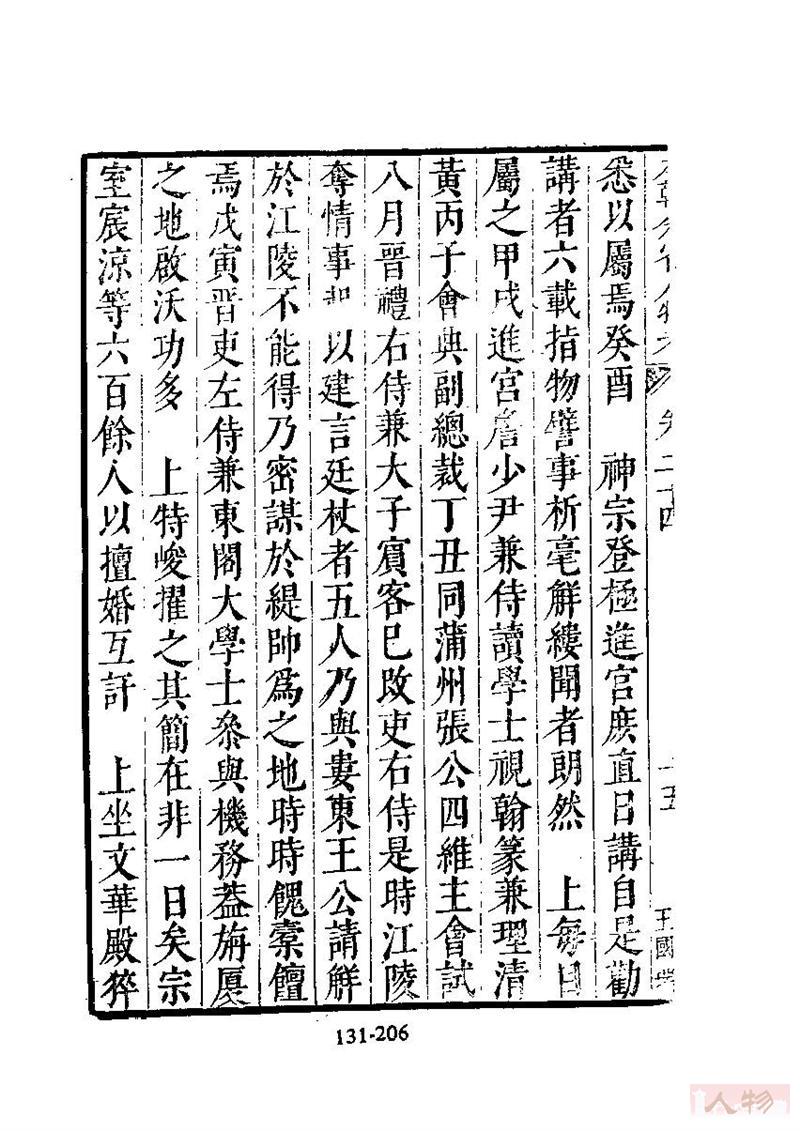 本朝分省人物考 卷二十四 十五 王國
悉以屬焉癸酉 神宗登極進宮庶直日講自是勸
講者六載指物譬事析毫解縷聞者朗然 上每日
屬之甲戌進宮詹少尹兼侍讀學士視翰篆兼理清
黃丙子會典副總裁丁丑同蒲州張公四維主會試
八月晉禮右侍兼大子賓客已改吏右侍是時江陵
奪情事起 以建言廷杖者五人乃與婁東王公請解
於江陵不能得乃密謀於緹帥為之地時時餽橐饘
焉戊寅晉吏左侍兼東閣大學士叅與機務葢旃厦
之地啟沃功多 上特峻擢之其簡在非一日矣宗
室宸涼等六百餘人以擅婚互訐 上坐文華殿猝
131-206
人物